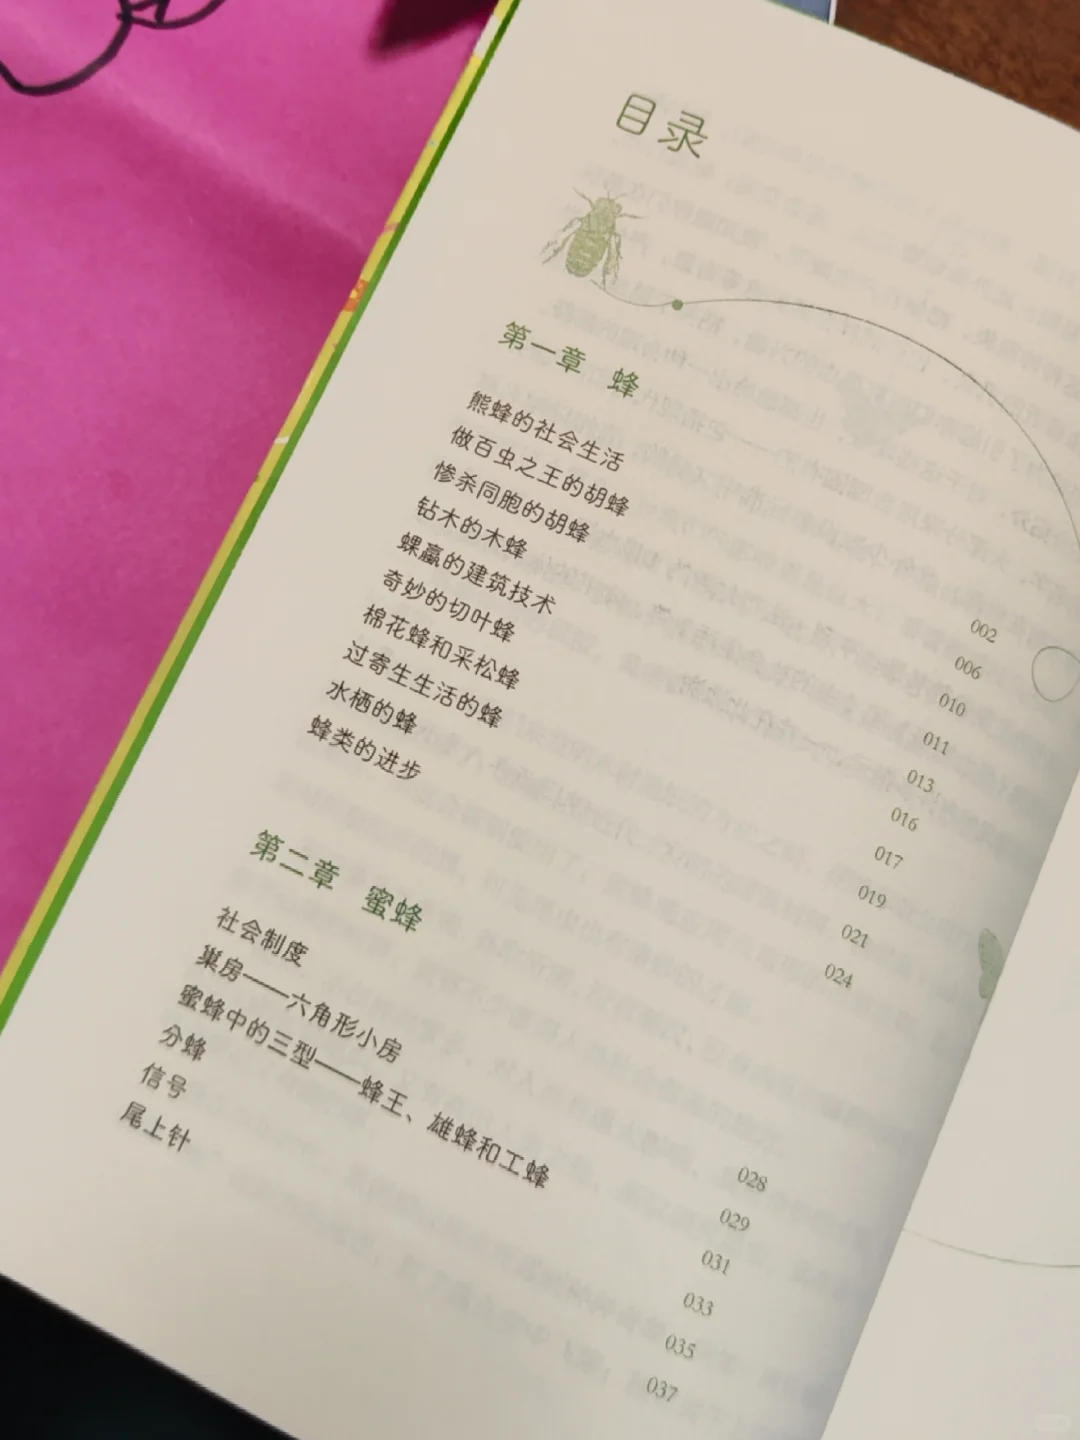 目录
第一章 蜂
熊蜂的社会生活 002
做百虫之王的胡蜂 006
惨杀同胞的胡蜂 010
钻木的木蜂 011
蜾蠃的建筑技术 013
奇妙的切叶蜂 016
棉花蜂和采松蜂 017
过寄生生活的蜂 019
水栖的蜂 021
蜂类的进步 024
第二章 蜜蜂
社会制度 028
巢房——六角形小房 029
蜜蜂中的三型——蜂王、雄蜂和工蜂 031
分蜂 033
信号 035
尾上针 037